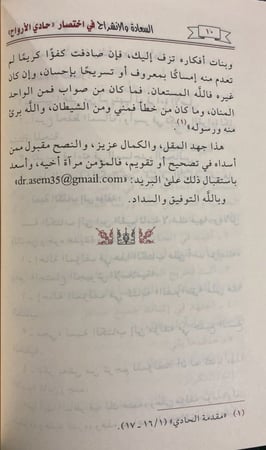 ١٠
السعادة والانشراح في اختصار «حادي الأرواح»
وبنات أفكاره تزف إليك، فإن صادفت كفؤًا كريمًا لم
تعدم منه إمساكًا بمعروف أو تسريحًا بإحسان، وإن كان
غيره فالله المستعان. فما كان من صواب فمن الواحد
المنان، وما كان من خطأ فمني ومن الشيطان، والله برئ
منه ورسوله»(١).
هذا جهد المقل، والكمال عزيز، والنصح مقبول ممن
أسداه في تصحيح أو تقويم، فالمؤمن مرآة أخيه، وأسعد
باستقبال ذلك على البريد: «dr.asem35@gmail.com»
وبالله التوفيق والسداد.
(١) «مقدمة الحادي» (١/ ١٦-١٧).